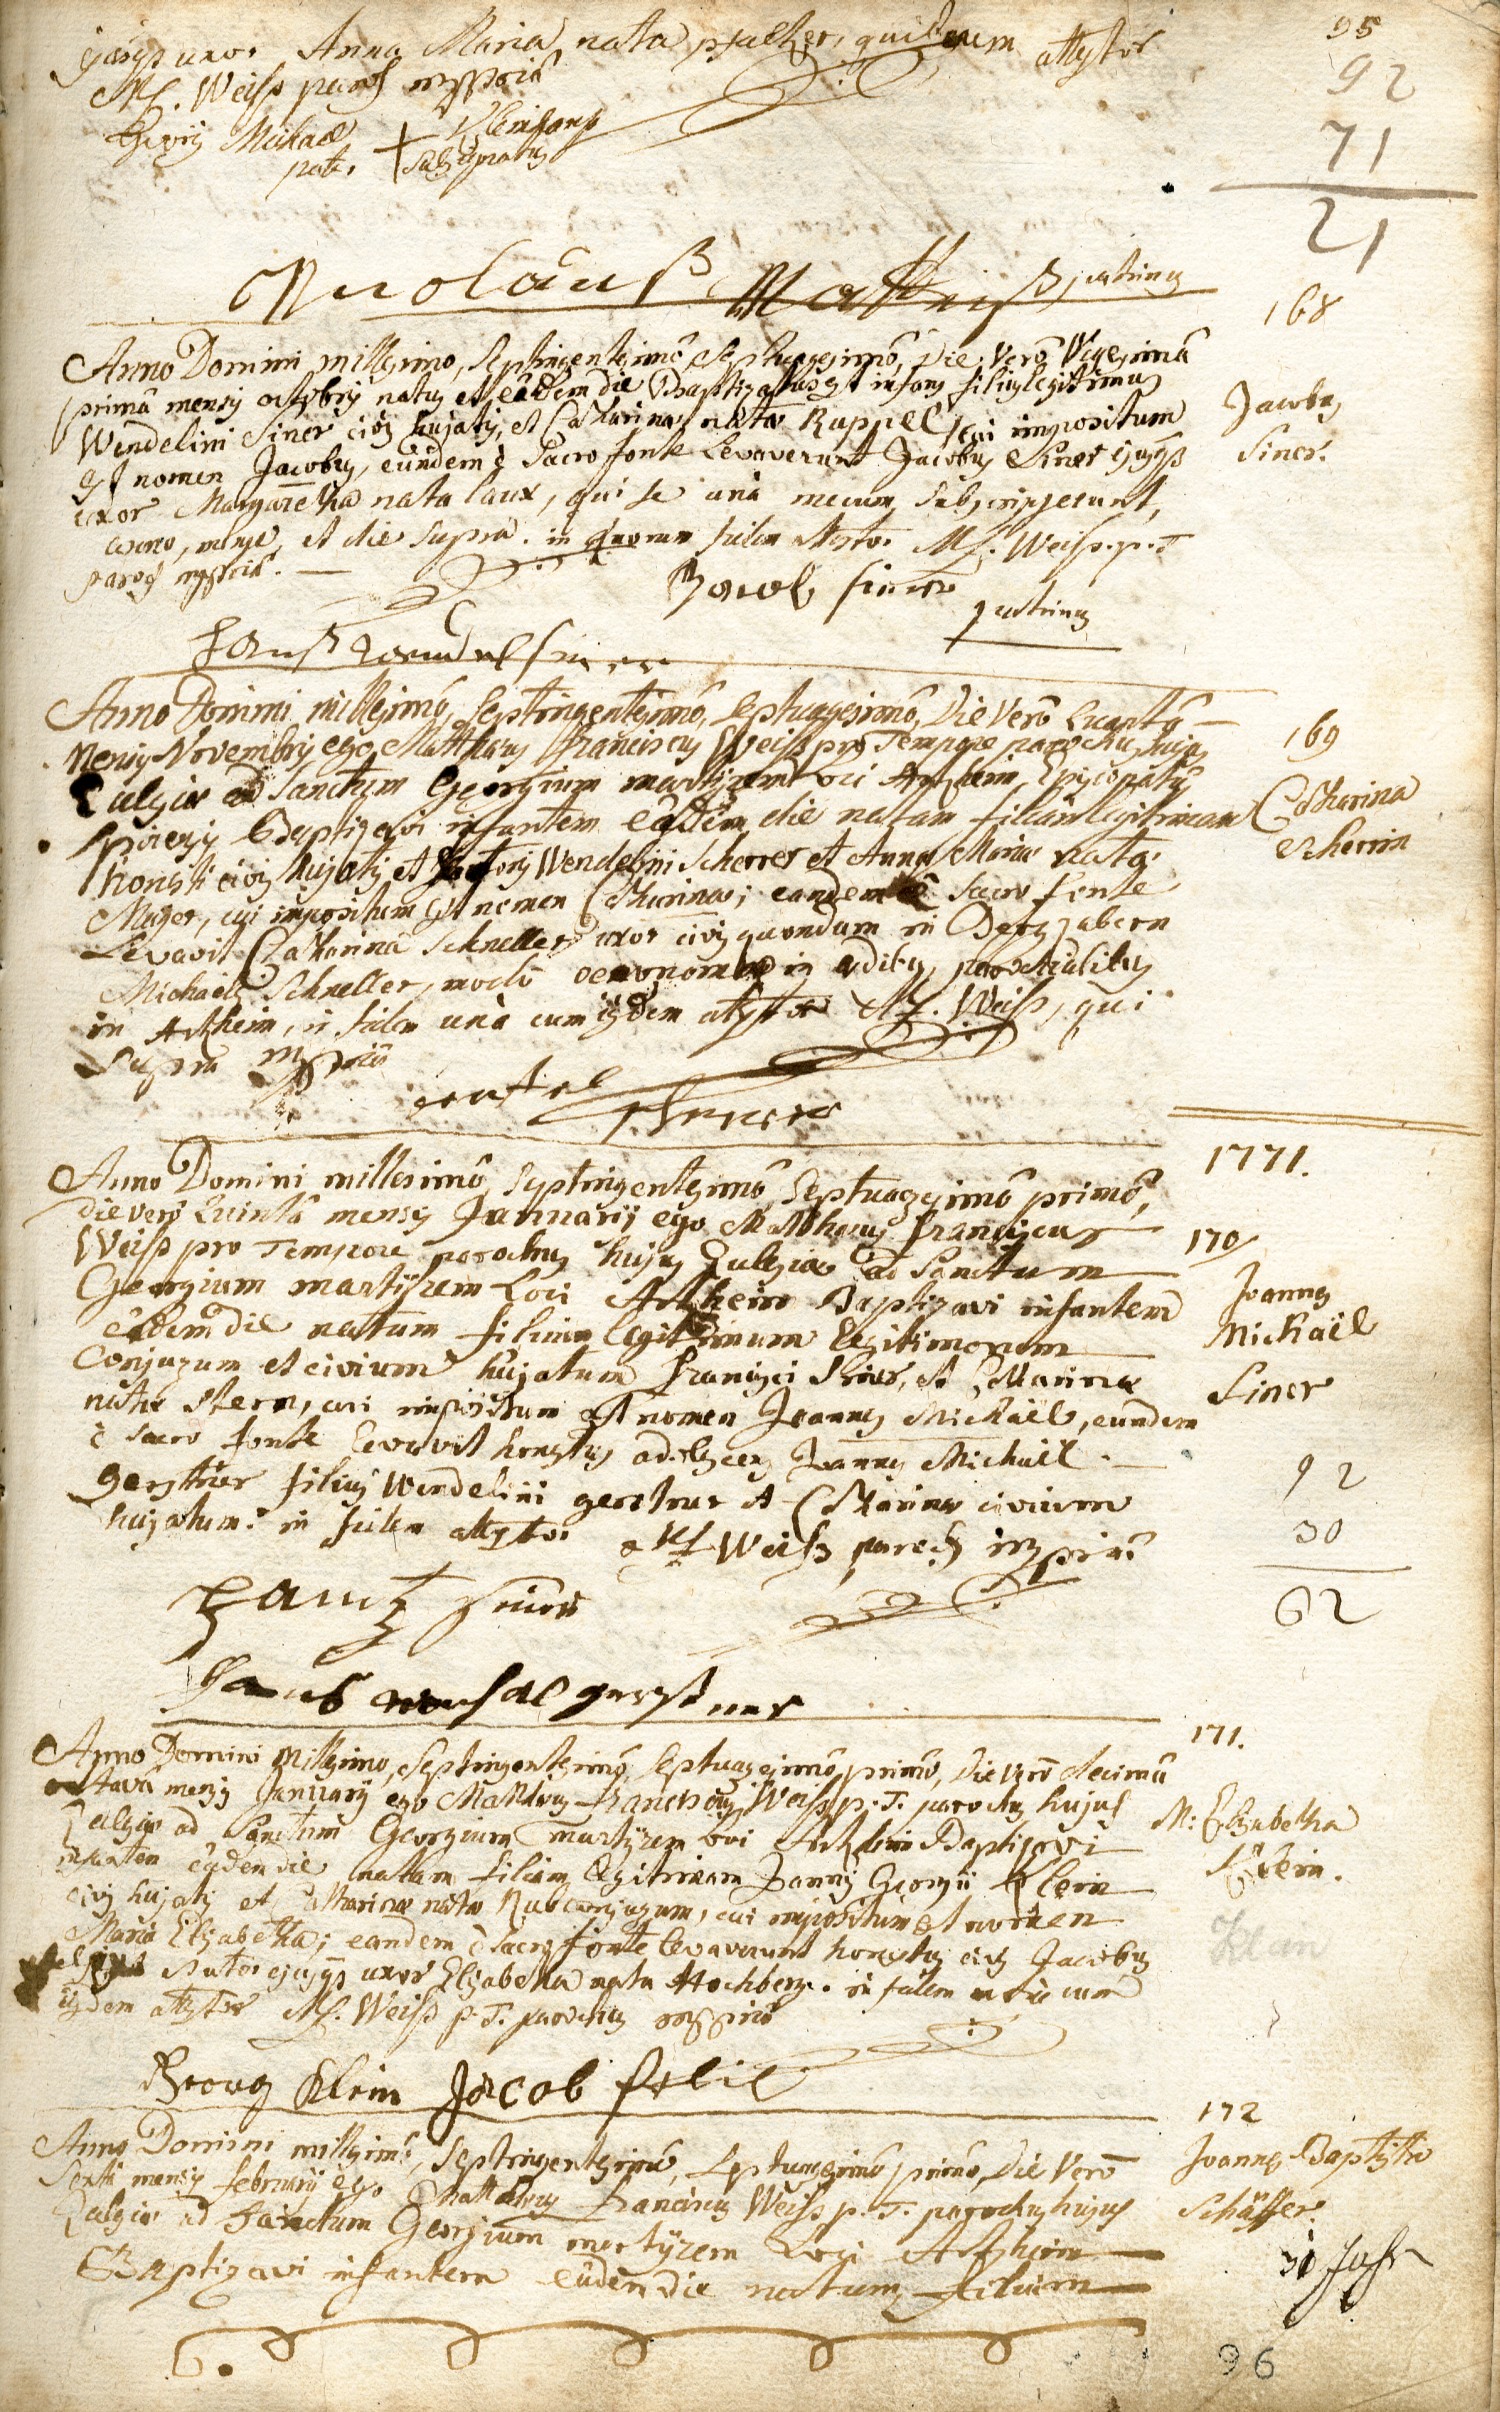 ejusq3 uxor Anna Maria nata psalter, qui
attestor
M.f. Weiß paroch mppriâ
Georg Michael
pater
95
92
71
21
Nicolauß Mattheiß patrinus
168
Anno Domini millesimo, Septingentesimô Septuagesimô, die verô Vigesimâ
primâ mensis octobris natus et eâdem die Baptizatus est infans filius legitimus
Wendelini Siner civis hujatis, et Catharinae natae Ruppel, cui impositum
est nomen Jacobus, eundem è Sacro fonte Levaverunt Jacobus Siner ejusq3
uxor Margaretha nata laux, qui se unà mecum subscripserunt,
anno, mense, et die supra. in quorum fidem attestor M.f. Weiss p.T.
paroch mppriâ.
Jacobus
Siner.
Jacob siner patrinus
Hanß wendel siner
Anno Domini millesimô, Septingentesimô, Septuagesimô, die verô Quartâ
Mensis Novembris ego Matthaeus Franciscus Weiss pro Tempore parochus hujus
Ecclesiae ad Sanctum Georgium martyrem loci Artzheim, Episcopatûs
Spirensis Baptizavi infantem eâdem die natam filiam legitimam
honesti civis hujatis et Wendelini Scherrer et Annae Mariae nata
Mager, cui impositum est nomen Catharina; eandem è Sacro fonte
Levavit Catharina Schneller uxor civis quondam in Bergzabern
Michaelis Schneller, modo oeconoma in aedibus parochialibus
in Artzheim, in fidem unà cum iisdem attestor M.f. Weiss, qui
supra mppriâ
169
Catharina
Scherrin
1771.
Anno Domini millesimô Septingentesimô Septuagesimô primô,
die verô Quintâ mensis Januarii ego Matthaeus Franciscus
Weiss pro Tempore parochus hujus Ecclesiae ad Sanctum
Georgium martyrem Loci Artzheim Baptizavi infantem
eâdem die natum filium legitimum legitimorum
Conjugum et civium hujatum Francisci Siner, et Marinae
natae Stern, cui impositum est nomen Joannes Michaël, eundem
è Sacro fonte Levavit honestus adolescens Joannes Michaël
Gerstner filius Wendelini gerstner et Catharinae civium
hujatum. in fidem attestor M.f. Weiss paroch mppriâ
170
Joannes
Michaël
Siner
92
30
62
Frantz siner
Hanß gerstner
171.
Anno Domini Millesimo, Septingentesimô, Septuagesimô primô, die verô decimâ
octavâ mensis Januarii ego Matthaeus Franciscus Weiss p.T. parochus hujus
Ecclesiae ad Sanctum Georgium martyrem loci Artzheim Baptizavi
infantem eâdem die natam filiam legitimam Joannis Georgii Klein
civis hujatis et Catharinae natae conjugum, cui impositum est nomen
Maria Elisabetha; eandem è Sacro fonte levaverunt honestus civis Jacobus
ejusq3 uxor Elisabetha nata Hochberg. in fidem unà cum
iisdem attestor M.f. Weiss p.T. parochus mppriâ
M: Elisabetha
Klein.
Klan
Georg Klein Jacob
172
Anno Domini millesimô, Septingentesimô, Septuagesimô primô, die verô
Sextâ mensis februarii ego Matthaeus Franciscus Weiss p.T. parochus hujus
Ecclesiae ad Sanctum Georgium martyrem Loci Artzheim
Baptizavi infantem eâdem die natum filium
Joannes Baptista
Schäffer.
96